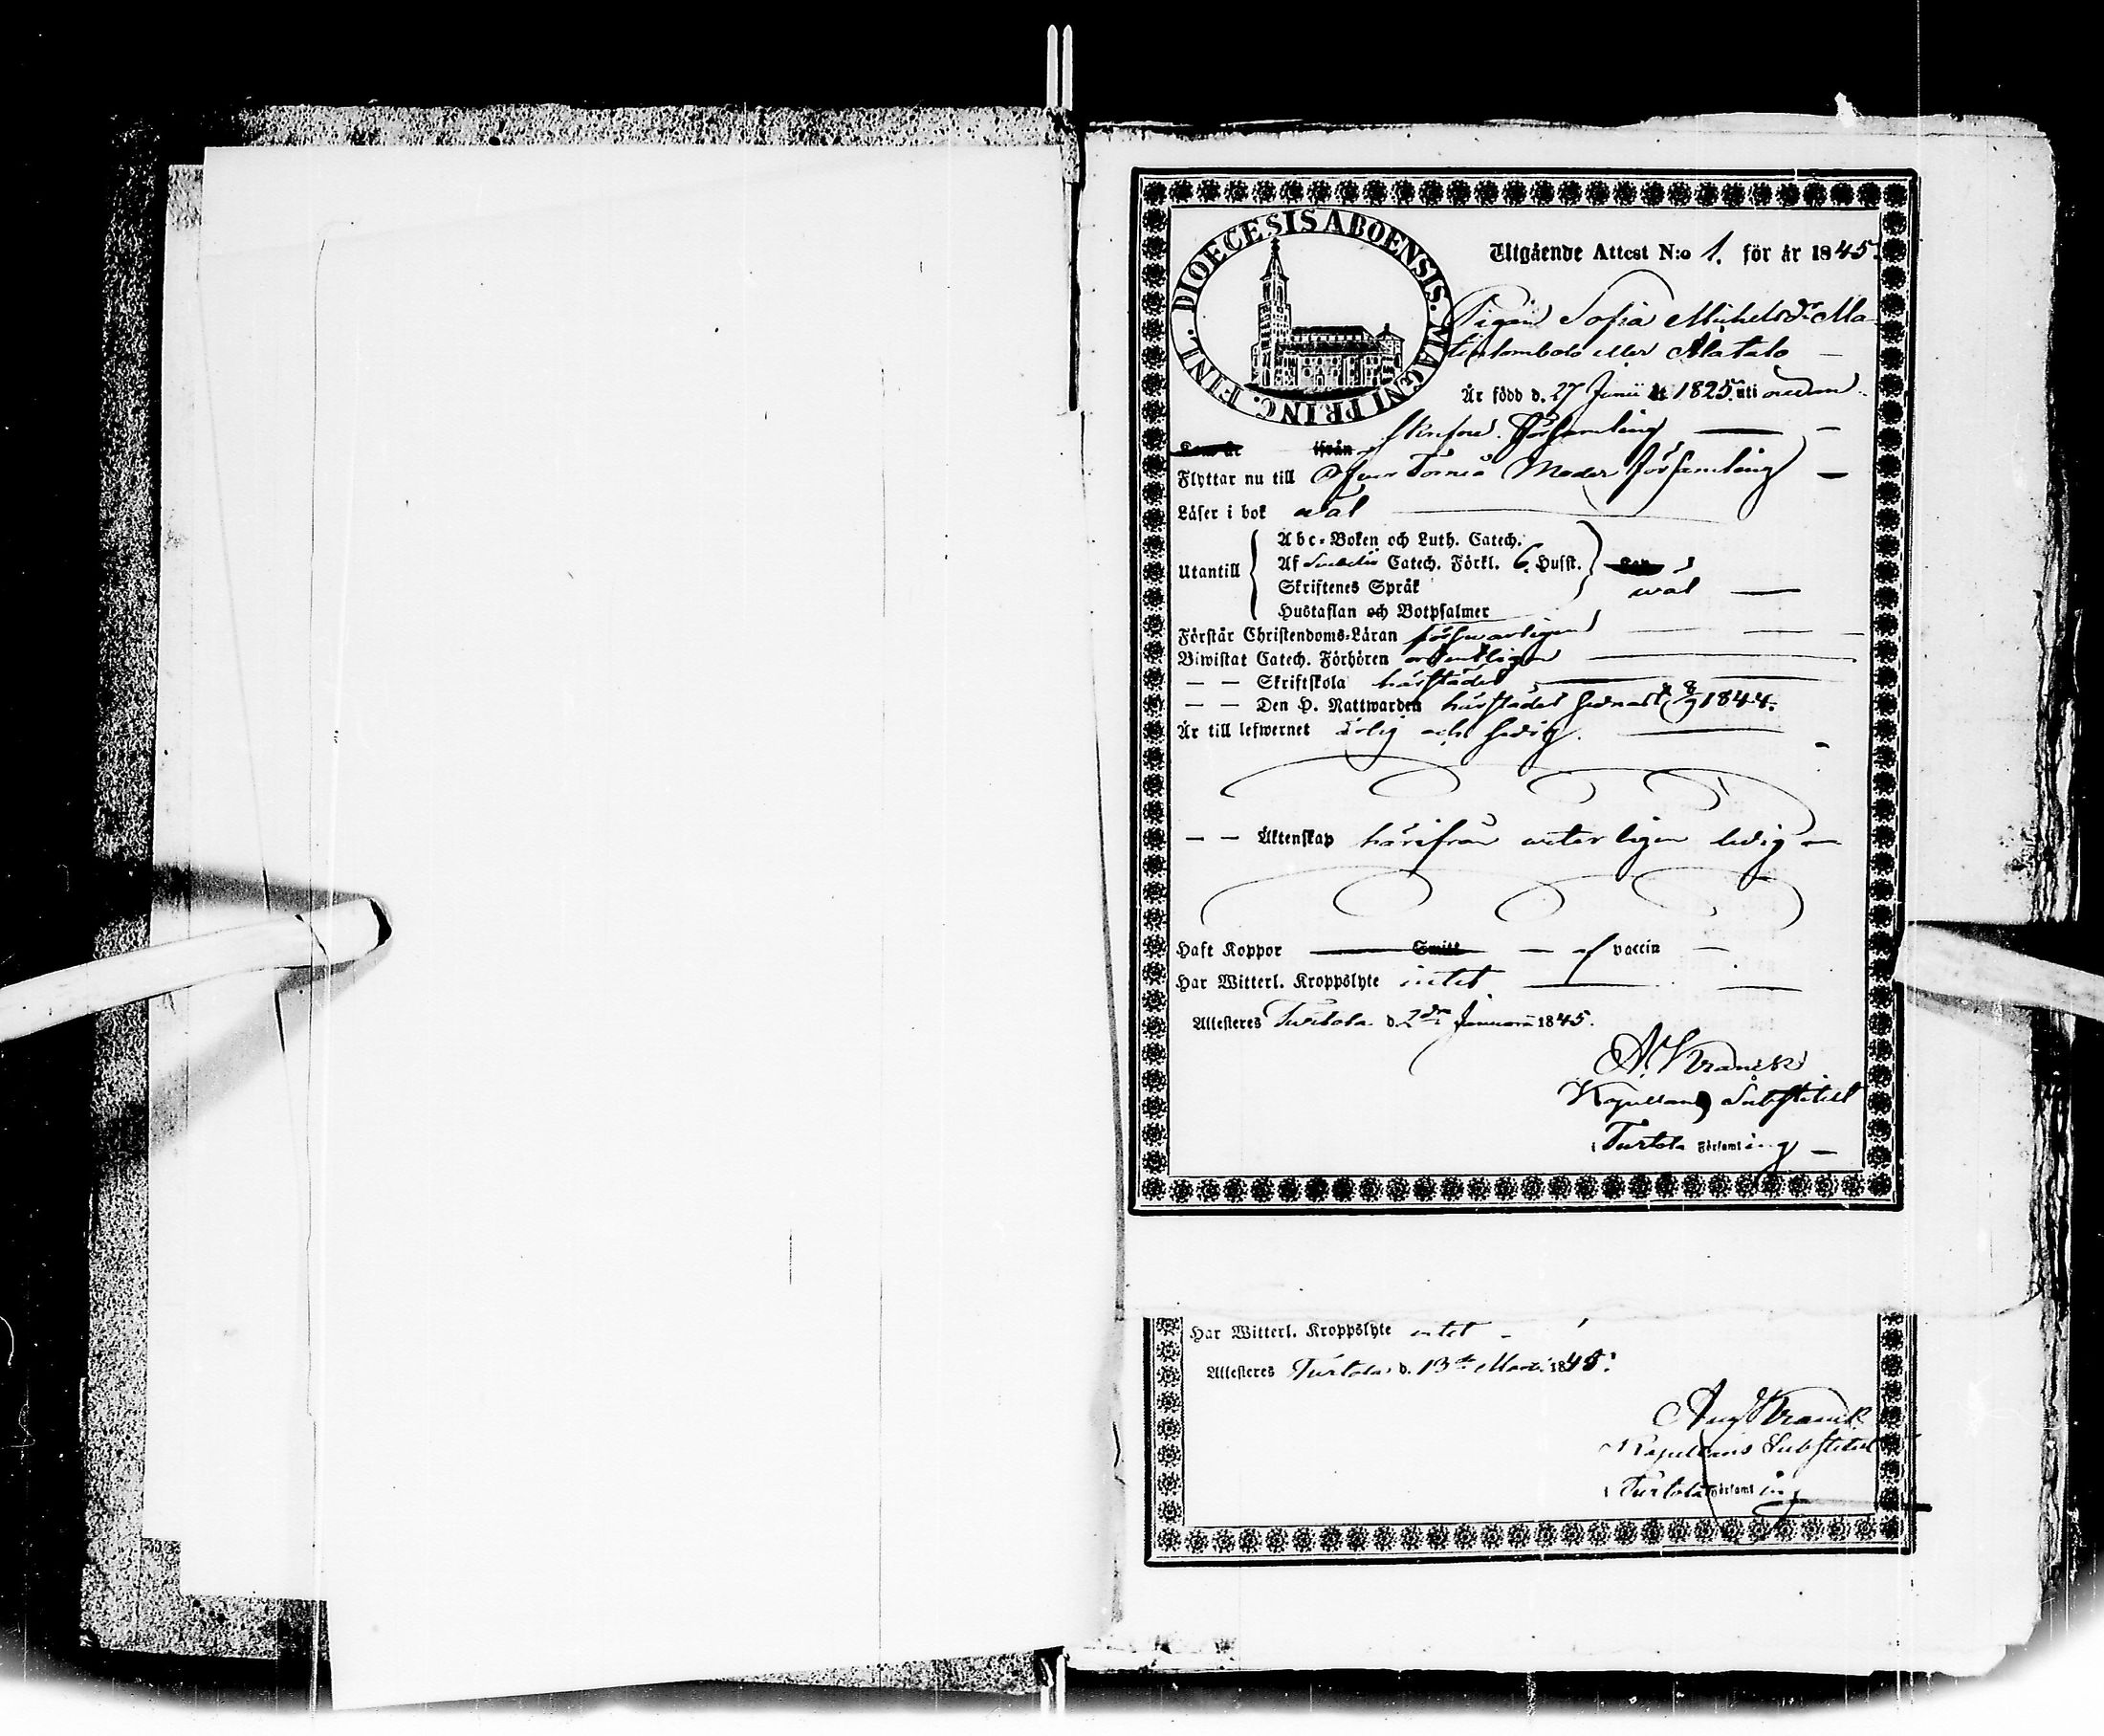 DIOECESIS ABOENSIS. MAGNI PRINC. FINL.
Utgående Attest N:o 1. för år 1845.
Pigan Sofia Michelsdr Ma-
eller Alatalo —
Är född d. 27 Junii 1825. uti nedan-
skrefne Församling —
Kom år ifrån
Flyttar nu till Öfver Torneå Moder församling —
Läser i bok wäl
Utantill
Abc-Boken och Luth. Catech.
Af Svebelii Catech. Förkl. 6. Hufst.
Skriftenes Språk wäl —
Hustaflan och Botpsalmer
Förstår Christendoms-Läran försvarligen
Biwistat Catech. Förhören ordentligen
— — Skriftskola härstädes
— — Den H. Nattwarden härstädes sednast 8/9 1844.
Är till lefwernet ärlig och sedig.
— — Äktenskap härifrån veterligen ledig —
Haft Koppor — Smitt — af vaccin —
Har Witterl. Kroppslyte intet
Attesteres Turtola d. 2dra Januarii 1845.
A. Kranck
Kapellans Substitut
i Turtola Församling —
Har Witterl. Kroppslyte intet -
Attesteres Turtola d. 13de Martii 1845.
Aug Kranck
Kapellans Substitut
i Turtola Församling